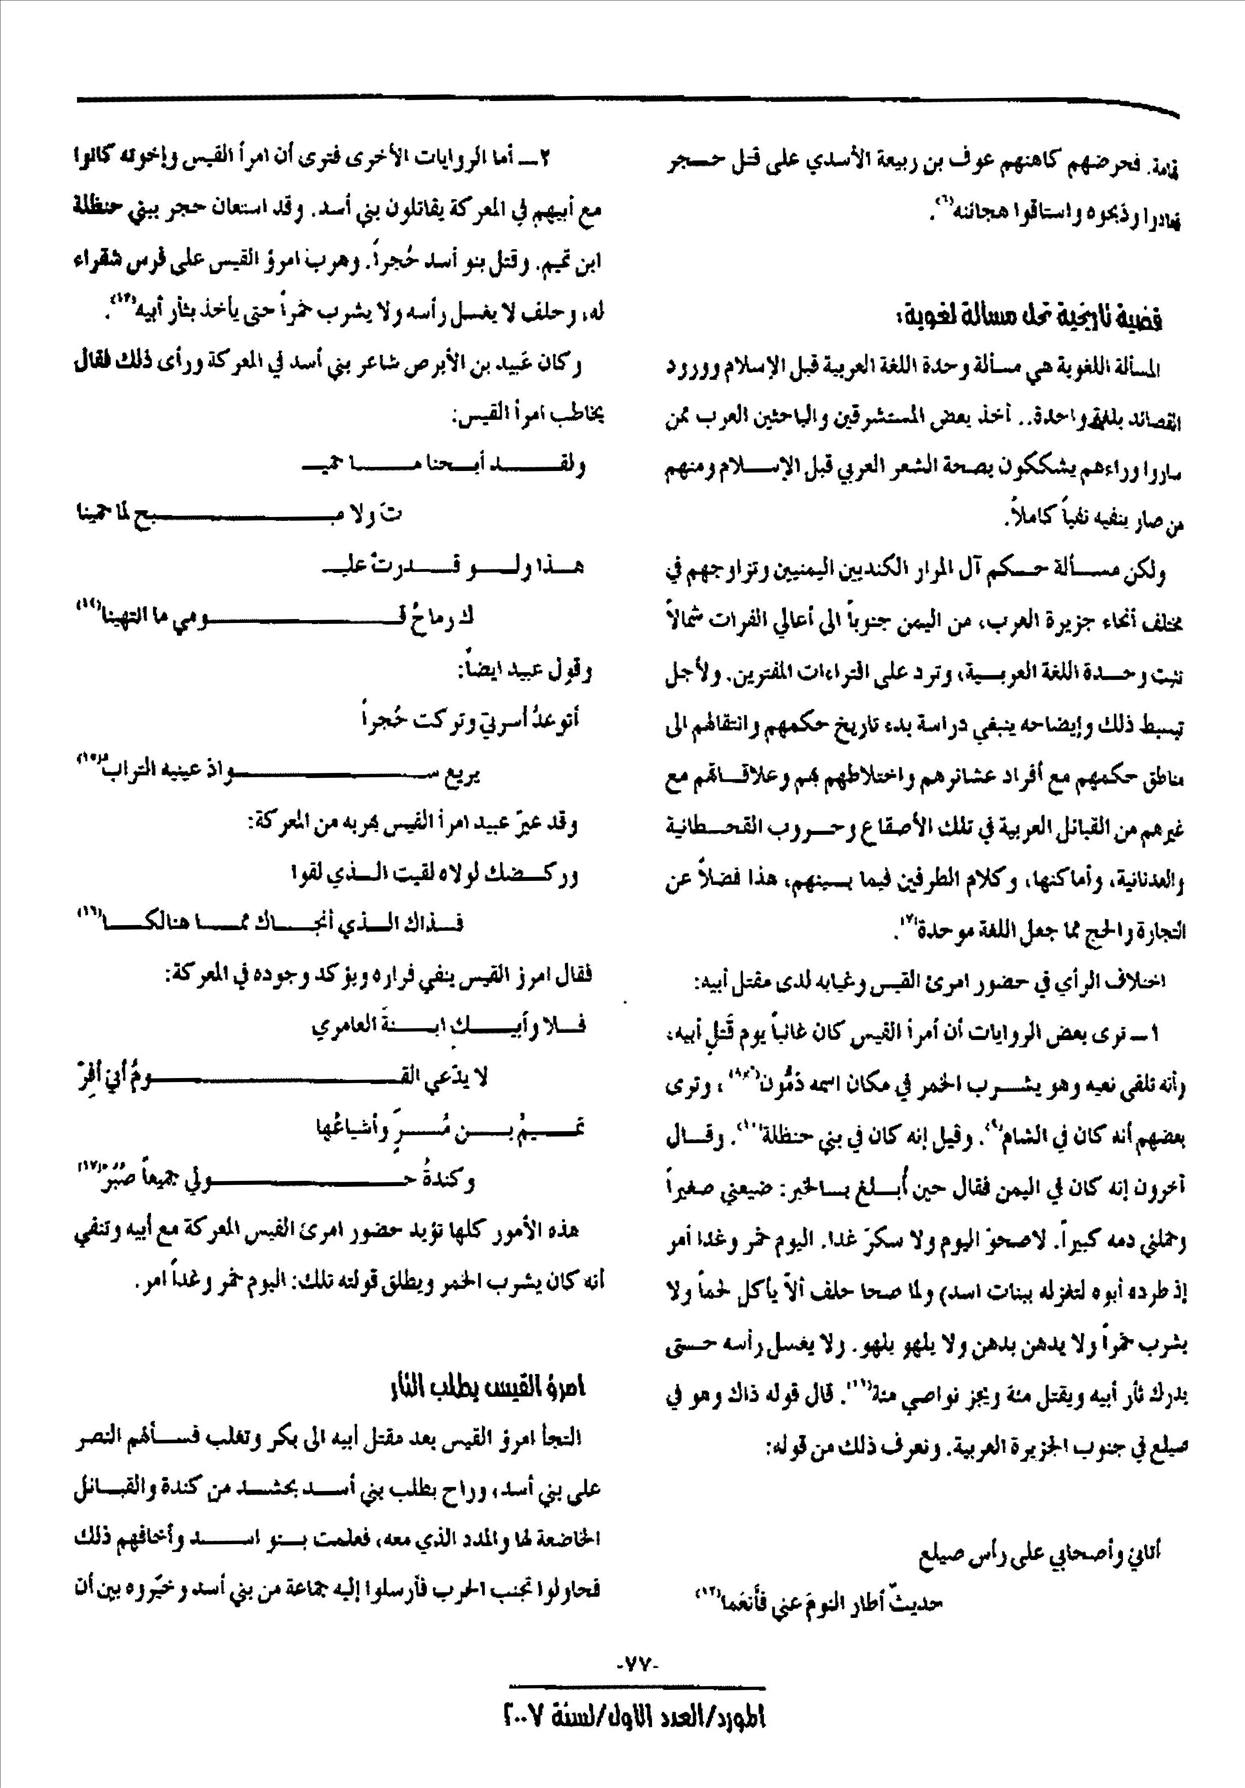 تهامة. فحرضهم كاهنهم عوف بن ربيعة الأسدي على قتل حجر
فغادرا وذبحوه واستاقوا هجائنه(٦).
قضية تاريخية تحل مسالة لغوية:
المسألة اللغوية هي مسألة وحدة اللغة العربية قبل الإسلام وورود
القصائد بلغة واحدة.. أخذ بعض المستشرقين والباحثين العرب ممن
ساروا وراءهم يشككون بصحة الشعر العربي قبل الإسلام ومنهم
من صار ينفيه نفياً كاملاً.
ولكن مسألة حكم آل المرار الكنديين اليمنيين وتزاوجهم في
مختلف أنحاء جزيرة العرب، من اليمن جنوباً الى أعالي الفرات شمالاً
تثبت وحدة اللغة العربية، وترد على افتراءات المفترين. ولأجل
تبسط ذلك وإيضاحه ينبغي دراسة بدء تاريخ حكمهم وانتقالهم الى
مناطق حكمهم مع أفراد عشائرهم واختلاطهم بهم وعلاقاتهم مع
غيرهم من القبائل العربية في تلك الأصقاع وحروب القحطانية
والعدنانية، وأماكنها، وكلام الطرفين فيما بينهم، هذا فضلاً عن
التجارة والحج مما جعل اللغة موحدة(٧).
اختلاف الرأي في حضور امرئ القيس وغيابه لدى مقتل أبيه:
١ــ ترى بعض الروايات أن أمرأ القيس كان غائباً يوم قَتلِ أبيه،
وأنه تلقى نعيه وهو يشرب الخمر في مكان اسمه دَمُّون(٨)، وترى
بعضهم أنه كان في الشام(٩). وقيل إنه كان في بني حنظلة(١٠). وقال
آخرون إنه كان في اليمن فقال حين أُبلغ بالخبر: ضيعني صغيراً
وحملني دمه كبيراً. لاصحوَ اليوم ولا سكرَ غدا. اليوم خمر وغدا أمر
إذ طرده أبوه لتغزله ببنات اسد) ولما صحا حلف ألاّ يأكل لحماً ولا
يشرب خمراً ولا يدهن بدهن ولا يلهو بلهو. ولا يغسل رأسه حتى
يدرك ثأر أبيه ويقتل مئة ويجز نواصي مئة(١١). قال قوله ذاك وهو في
صيلع في جنوب الجزيرة العربية. ونعرف ذلك من قوله:
أتاني وأصحابي على رأس صيلع
حديثٌ أطار النومَ عني فأَنعَما(١٢)
٢ــ أما الروايات الأخرى فترى أن امرأ القيس وإخوته كانوا
مع أبيهم في المعركة يقاتلون بني أسد. وقد استعان حجر ببني حنظلة
ابن تميم. وقتل بنو أسد حُجراً. وهرب امرؤ القيس على فرس شقراء
له، وحلف لا يغسل رأسه ولا يشرب خمراً حتى يأخذ بثأر أبيه(١٣).
وكان عَبيد بن الأبرص شاعر بني أسد في المعركة ورأى ذلك فقال
يخاطب امرأ القيس:
ولقد أبحنا ما حميـ
تَ ولا مبيح لما حمينا
هذا ولو قدرتْ عليـ
ك رماحُ قومي ما انتهينا(١٤)
وقول عبيد ايضاً:
أتوعدُ أسرتي وتركت حُجراً
يريع سواد عينيه التراب(١٥)
وقد عيرّ عبيد امرأ القيس بهربه من المعركة:
وركضك لولاه لقيت الذي لقوا
فذاك الذي أنجاك مما هنالكا(١٦)
فقال امرؤ القيس ينفي فراره ويؤكد وجوده في المعركة:
فلا وأبيكِ ابنةَ العامري
لا يدّعي القومُ أني أفِرّ
تميمُ بن مُرٍّ وأشياعُها
وكندةُ حولي جميعاً صُبُرْ(١٧)
هذه الأمور كلها تؤيد حضور امرئ القيس المعركة مع أبيه وتنفي
أنه كان يشرب الخمر ويطلق قولته تلك: اليوم خمر وغداً امر.
امرؤ القيس يطلب الثأر
التجأ امرؤ القيس بعد مقتل أبيه الى بكر وتغلب فسألهم النصر
على بني أسد، وراح يطلب بني أسد بحشد من كندة والقبائل
الخاضعة لها والمدد الذي معه، فعلمت بنو اسد وأخافهم ذلك
فحاولوا تجنب الحرب فأرسلوا إليه جماعة من بني أسد وخيّروه بين أن
-٧٧-
المورد/العدد الاول/لسنة ٢٠٠٧